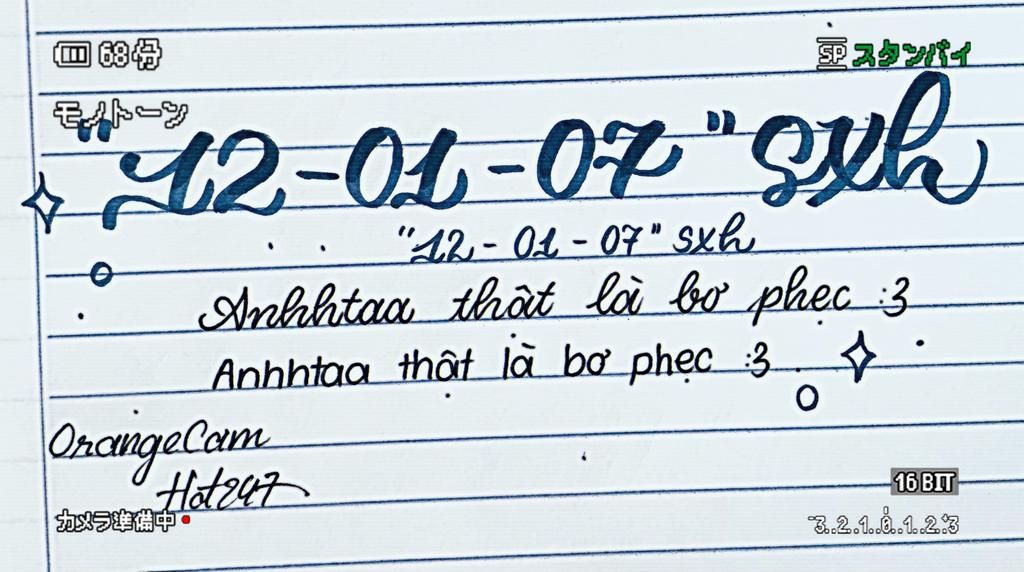 68分
SP スタンバイ
モノトーン
"12-01-07" sxh
"12-01-07" sxh
Anhhtaa thật là bơ phẹc :3
Anhhtaa thật là bơ phẹc :3
OrangeCam
Hot247
16 BIT
カメラ準備中
-3..2..1..0..1..2..+3